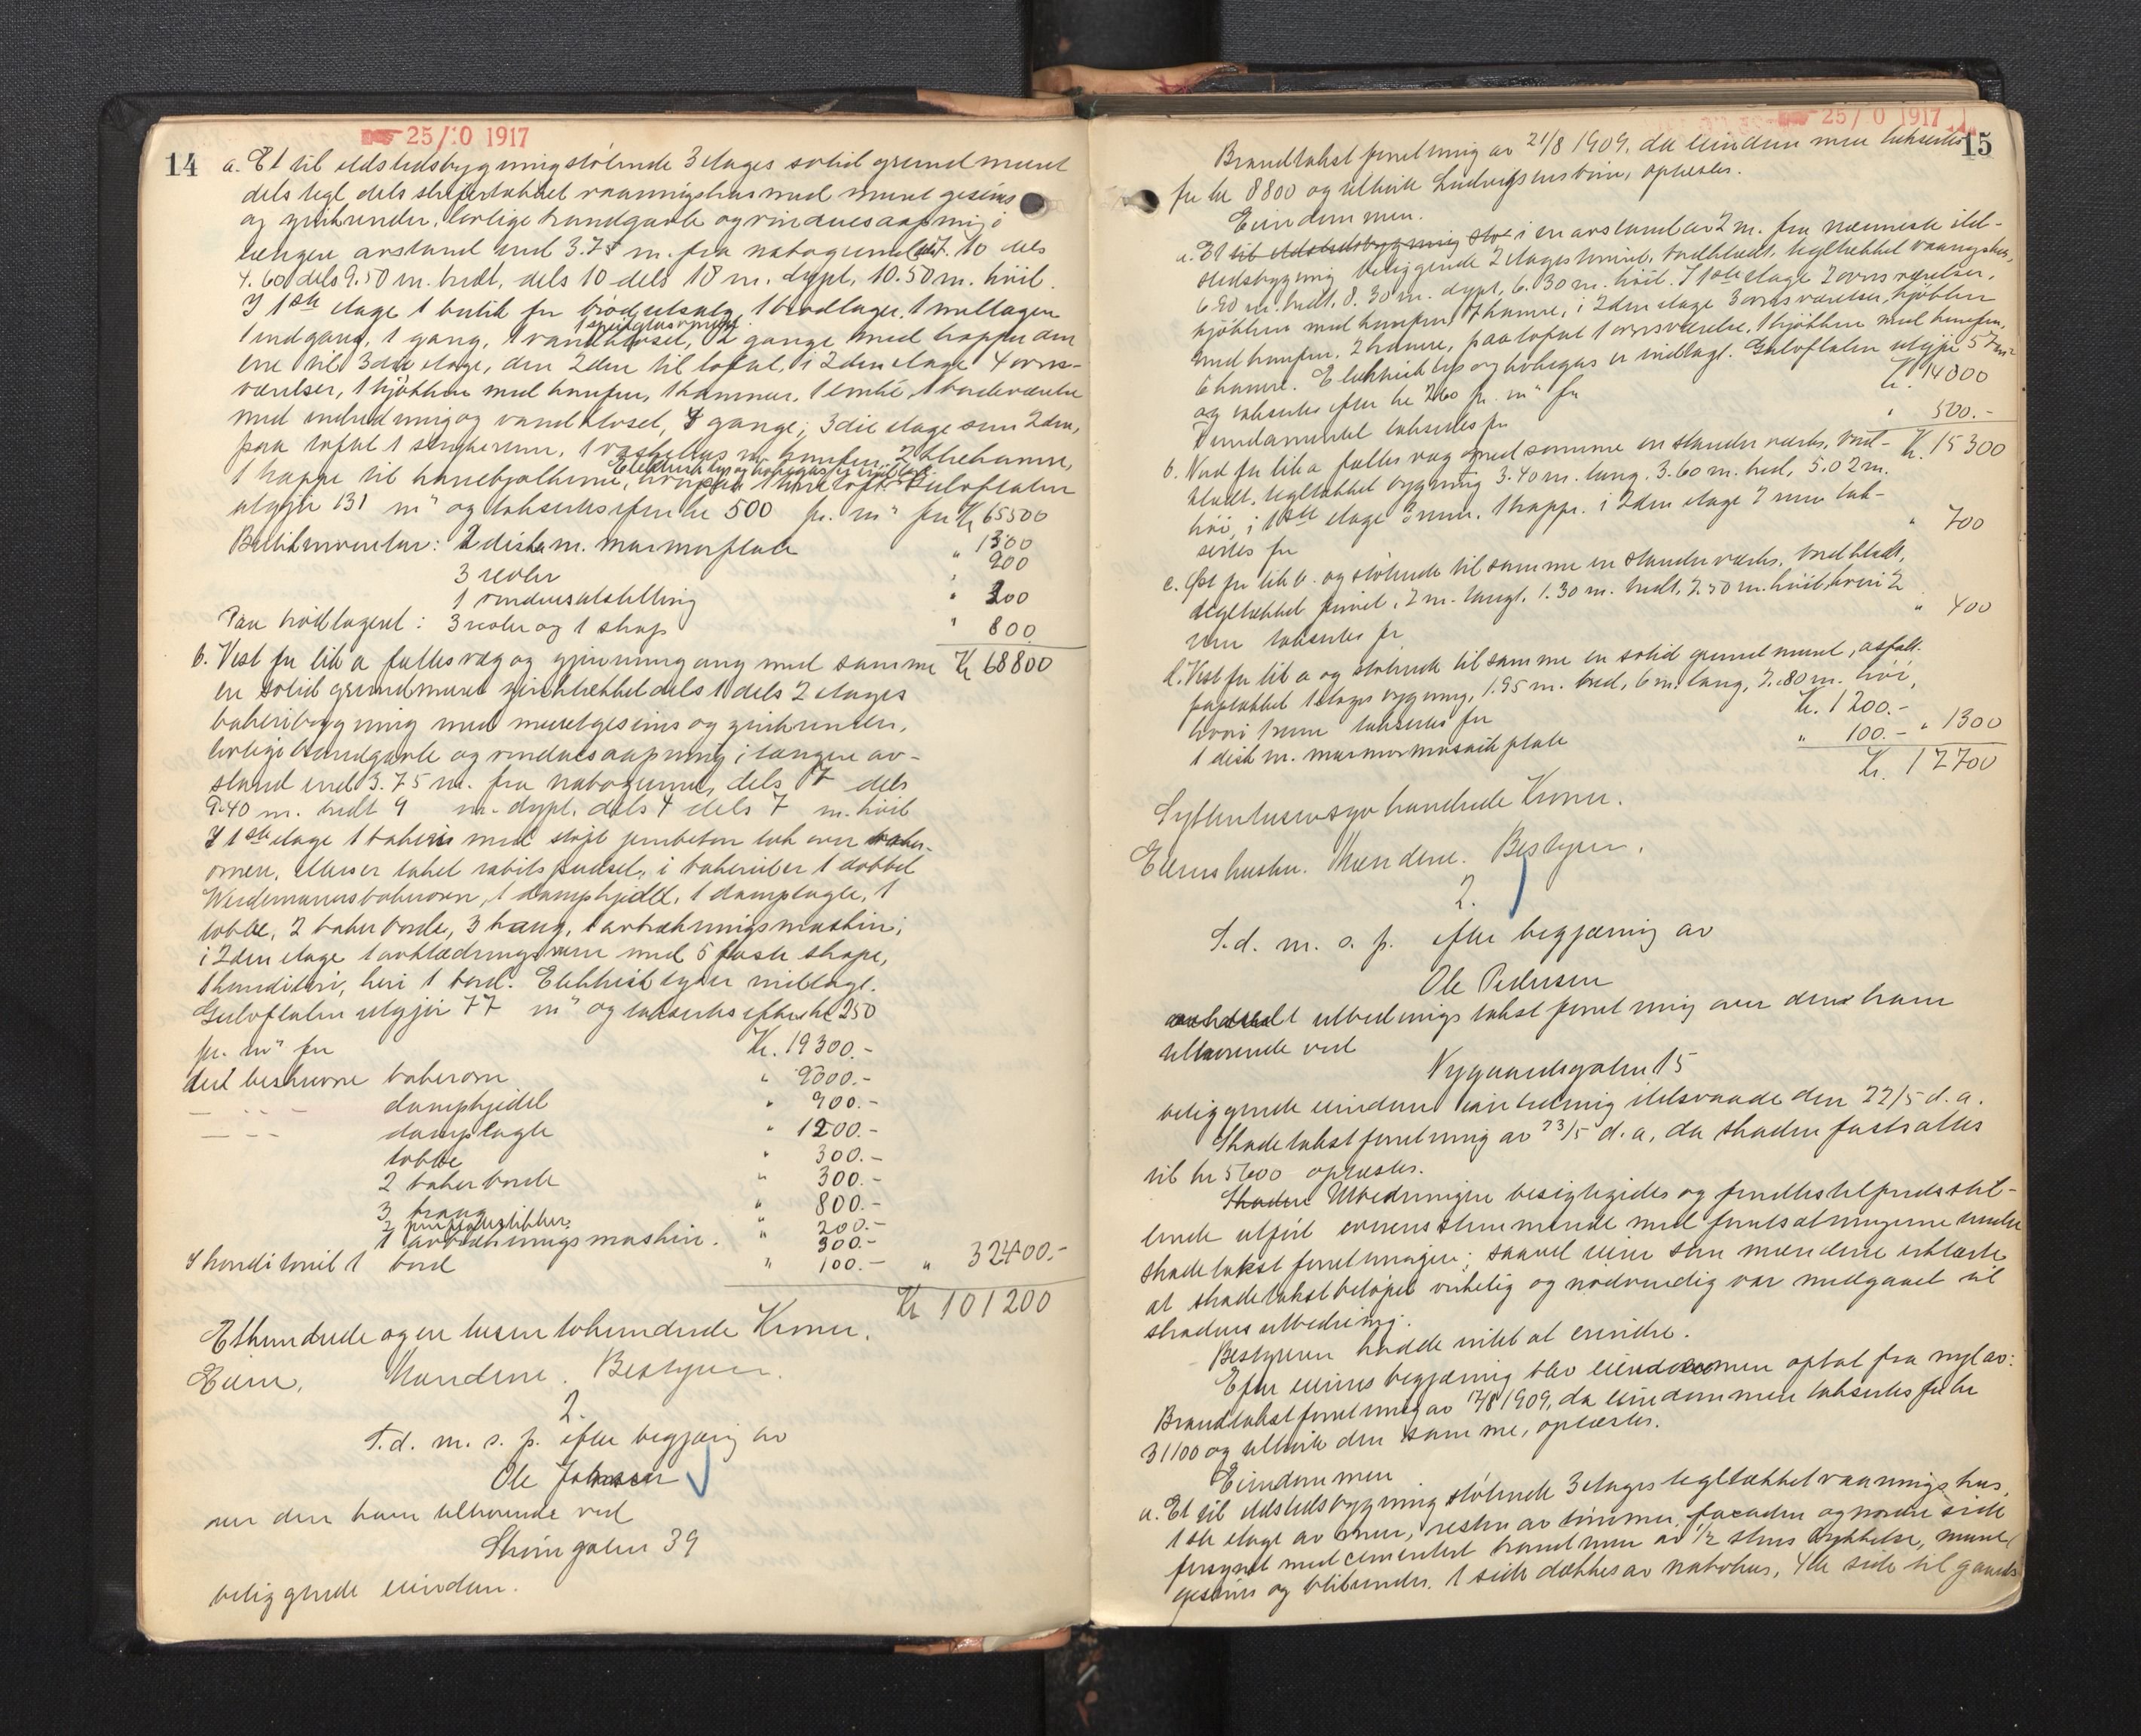 25/10 1917
14
a. Et til ildstedsbygning stötende 3 etages solid grundmuret
dels tegl, dels skifertækket vaaningshus med muret gesims
og zinkrender, lovlige brandgavle og vinduesaapning i
længere avstand end 3.75 m. fra nabogrund, 10 dels
4.60 dels 9.50 m. bredt, dels 10 dels 18 m. dypt, 10.50 m. höit.
I 1ste etage 1 butik for brödutsalg, 1 brödlager, 1 mellager
1 indgang, 1 gang, 1 vandkloset, 2 gange med trapper den
ene til 3die etage, den 2den til loftet, i 2den etage 4 ovns-
værelser, 1 kjökken med komfur, 1 kammer, 1 entré, 1 badeværelse
med indredning og vandkloset, gange; 3die etage som 2den,
paa loftet 1 strykerum, 1 vaskehus m. komfur, 2 klækamre,
Elektrisk lys og kokegas er indlagt.
1 trappe til hanebjælkerne, Gulvflaten
utgjör 131 m" og takseres efter kr 500 pr. m" for Kr 65500
Butikinventar: 2 diske m. marmorplate " 1300
3 reoler " 900
1 vindusutstilling " 300
Paa brödlageret: 3 reoler og 1 skap " 800
Kr 68800
b. Vest for lit a fælles væg og gjennemgang med samme
en solid grundmuret zinktækket dels 1 dels 2 etages
bakeribygning med muret gesims og zinkrender,
lovlige brandgavle og vinduesaapning i længere av-
stand end 3.75 m. fra nabogrund, dels 7 dels
9.40 m. bredt 9 m. dypt, dels 4 dels 7 m. höit
I 1ste etage 1 bakeri med stöpt jernbeton tak over baker-
ovnen, ellers taket rabitspudset, i bakeriet er 1 dobbel
Werdemanns bakerovn, 1 dampkjedel, 1 damplagle, 1
tobbe, 2 bakerborde, 3 traug, 1 avtrækningsmaskin;
i 2den etage 1 avklædningsrum med 5 faste skape,
1 konditori, heri 1 bord. Elektrisk lys er indlagt.
Gulvflaten utgjör 77 m" og takseres efter kr 250
pr. m" for Kr. 19300.-
det beskrevne bakerovn " 9300.-
— " — dampkjedel " 900.-
— " — damplagle " 1200.-
tobbe " 300.-
2 bakerborde " 300.-
3 traug " 800.-
2 " 200.-
1 avtrækningsmaskin. " 300.-
I konditoriet 1 bord " 100.- " 32400.-
Kr 101200
Ethundrede og en tusen tohundrede Kroner.
Eieren. Mændene. Bestyrer.
2.
S. d. m. s. p. efter begjæring av
Ole Johnsen
over den ham tilhörende ved
Strömgaten 39
beliggende eiendom.
25/10 1917
15
Brandtakstforretning av 21/8 1909, da eiendommen takseredes
for kr 8800 og tilhörte Ludvigsens bo, oplæstes.
Eiendommen.
a. Et til ildstedsbygning stø i en avstand av 2 m. fra nærmeste ild-
stedsbygning beliggende 2 etages tömret, bordklædt, tegltækket vaaningshus,
6.90 m. bredt, 8.30 m. dypt, 6.30 m. höit. I 1ste etage 2 ovnsværelser,
kjökken med komfur, 1 kamre, i 2den etage 3 ovnsværelser, kjökken
med komfur, 2 kamre, paa loftet 1 ovnsværelse, 1 kjökken med komfur,
6 kamre. Elektrisk lys og kokegas er indlagt. Gulvflaten utgjör 57 m"
og takseres efter kr 260 pr. m" for Kr. 14800
Fundamentet takseres for " 500.-
Kr. 15300
b. Nord for lit a fælles væg med samme en stenderværks, bord-
klædt, tegltækket bygning 3.40 m. lang, 3.60 m. bred, 5.02 m.
höi, i 1ste etage 3 rum, 1 trappe, i 2den etage 2 rum tak-
seres for " 700
c. Öst for lit b. og stötende til samme en stenderværks, bordklædt,
tegltækket privet, 2 m. langt, 1.30 m. bredt, 2.50 m. höit, hvori 2
rum takseres for " 400
d. Vest for lit a og stötende til samme en solid grundmuret, asfalt-
paptækket 1 etages bygning, 1.95 m. bred, 6 m. lang, 2.80 m. höi,
hvori 1 rum takseres for Kr. 1200.-
1 disk m. marmormosaik plate " 100.- " 1300
Kr. 17700
Syttentusensyvhundrede Kroner.
Eierens hustru. Mændene. Bestyrer.
2.
S. d. m. s. p. efter begjæring av
Ole Pedersen
avholdt utbedringstakstforretning over den ham
tilhörende ved
Nygaardsgaten 15
beliggende eiendom i anledning ildsvaade den 22/5 d. a.
Skadetakstforretning av 23/5 d. a, da skaden fastsattes
til kr 5600 oplæstes.
Skaden Utbedringen besigtigedes og fandtes tilfredsstil-
lende utfört overensstemmende med forutsætningerne under
skadetakstforretningen; saavel eier som mændene erklærte
at skadetakstbelöpet virkelig og nödvendig var medgaaet til
skadens utbedring.
Bestyreren hadde intet at erindre.
Efter eierens begjæring blev eiendommen optat fra nyt av:
Brandtakstforretning av 17/8 1909, da eiendommen takseredes for kr
31100 og tilhörte den samme, oplæstes.
Eiendommen
a. Et til ildstedsbygning stötende 3 etages tegltækket vaaningshus,
1ste etage av mur, resten av tömmer, facaden og nordre side
forsynet med cementert brandmur av 1/2 stens tykkelse, muret
gesims og blikrender. 1 side dækkes av nabohus, 4de side til gaards